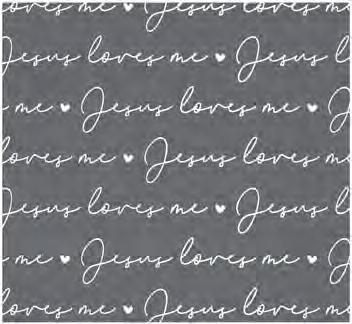 loves me ♥ Jesus loves me
Jesus loves me ♥ Jesus l
me ♥ Jesus loves me ♥ J
loves me ♥ Jesus loves me
Jesus loves me ♥ Jesus l
me ♥ Jesus loves me ♥ J
loves me ♥ Jesus loves me